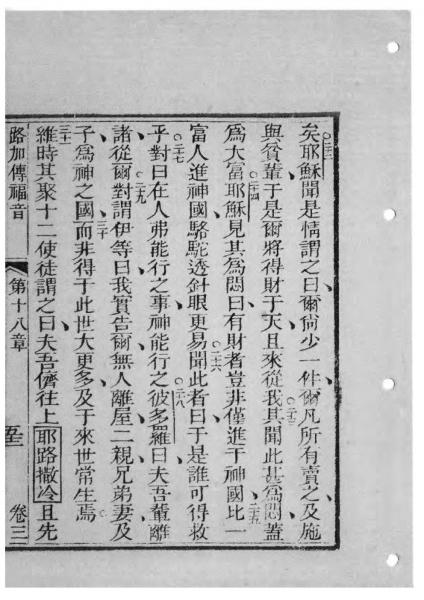 矣○二十二耶穌聞是情謂之曰爾尚少一件爾凡所有賣之及施
與貧輩于是爾將得財于天且來從我○二十三其聞此甚為悶蓋
為大富○二十四耶穌見其為悶曰有財者豈非僅進于神國○二十五比一
富人進神國駱駝透針眼更易○二十六聞此者曰于是誰可得救
乎○二十七對曰在人弗能行之事神能行之○二十八彼多羅曰夫吾輩離
諸從爾○二十九對謂伊等曰我實告爾無人離屋二親兄弟妻及
子為神之國○三十而非得于此世大更多及于來世常生焉○
三十一維時其聚十二使徒謂之曰夫吾儕往上耶路撒冷且先
路加傳福音 第十八章 卷三